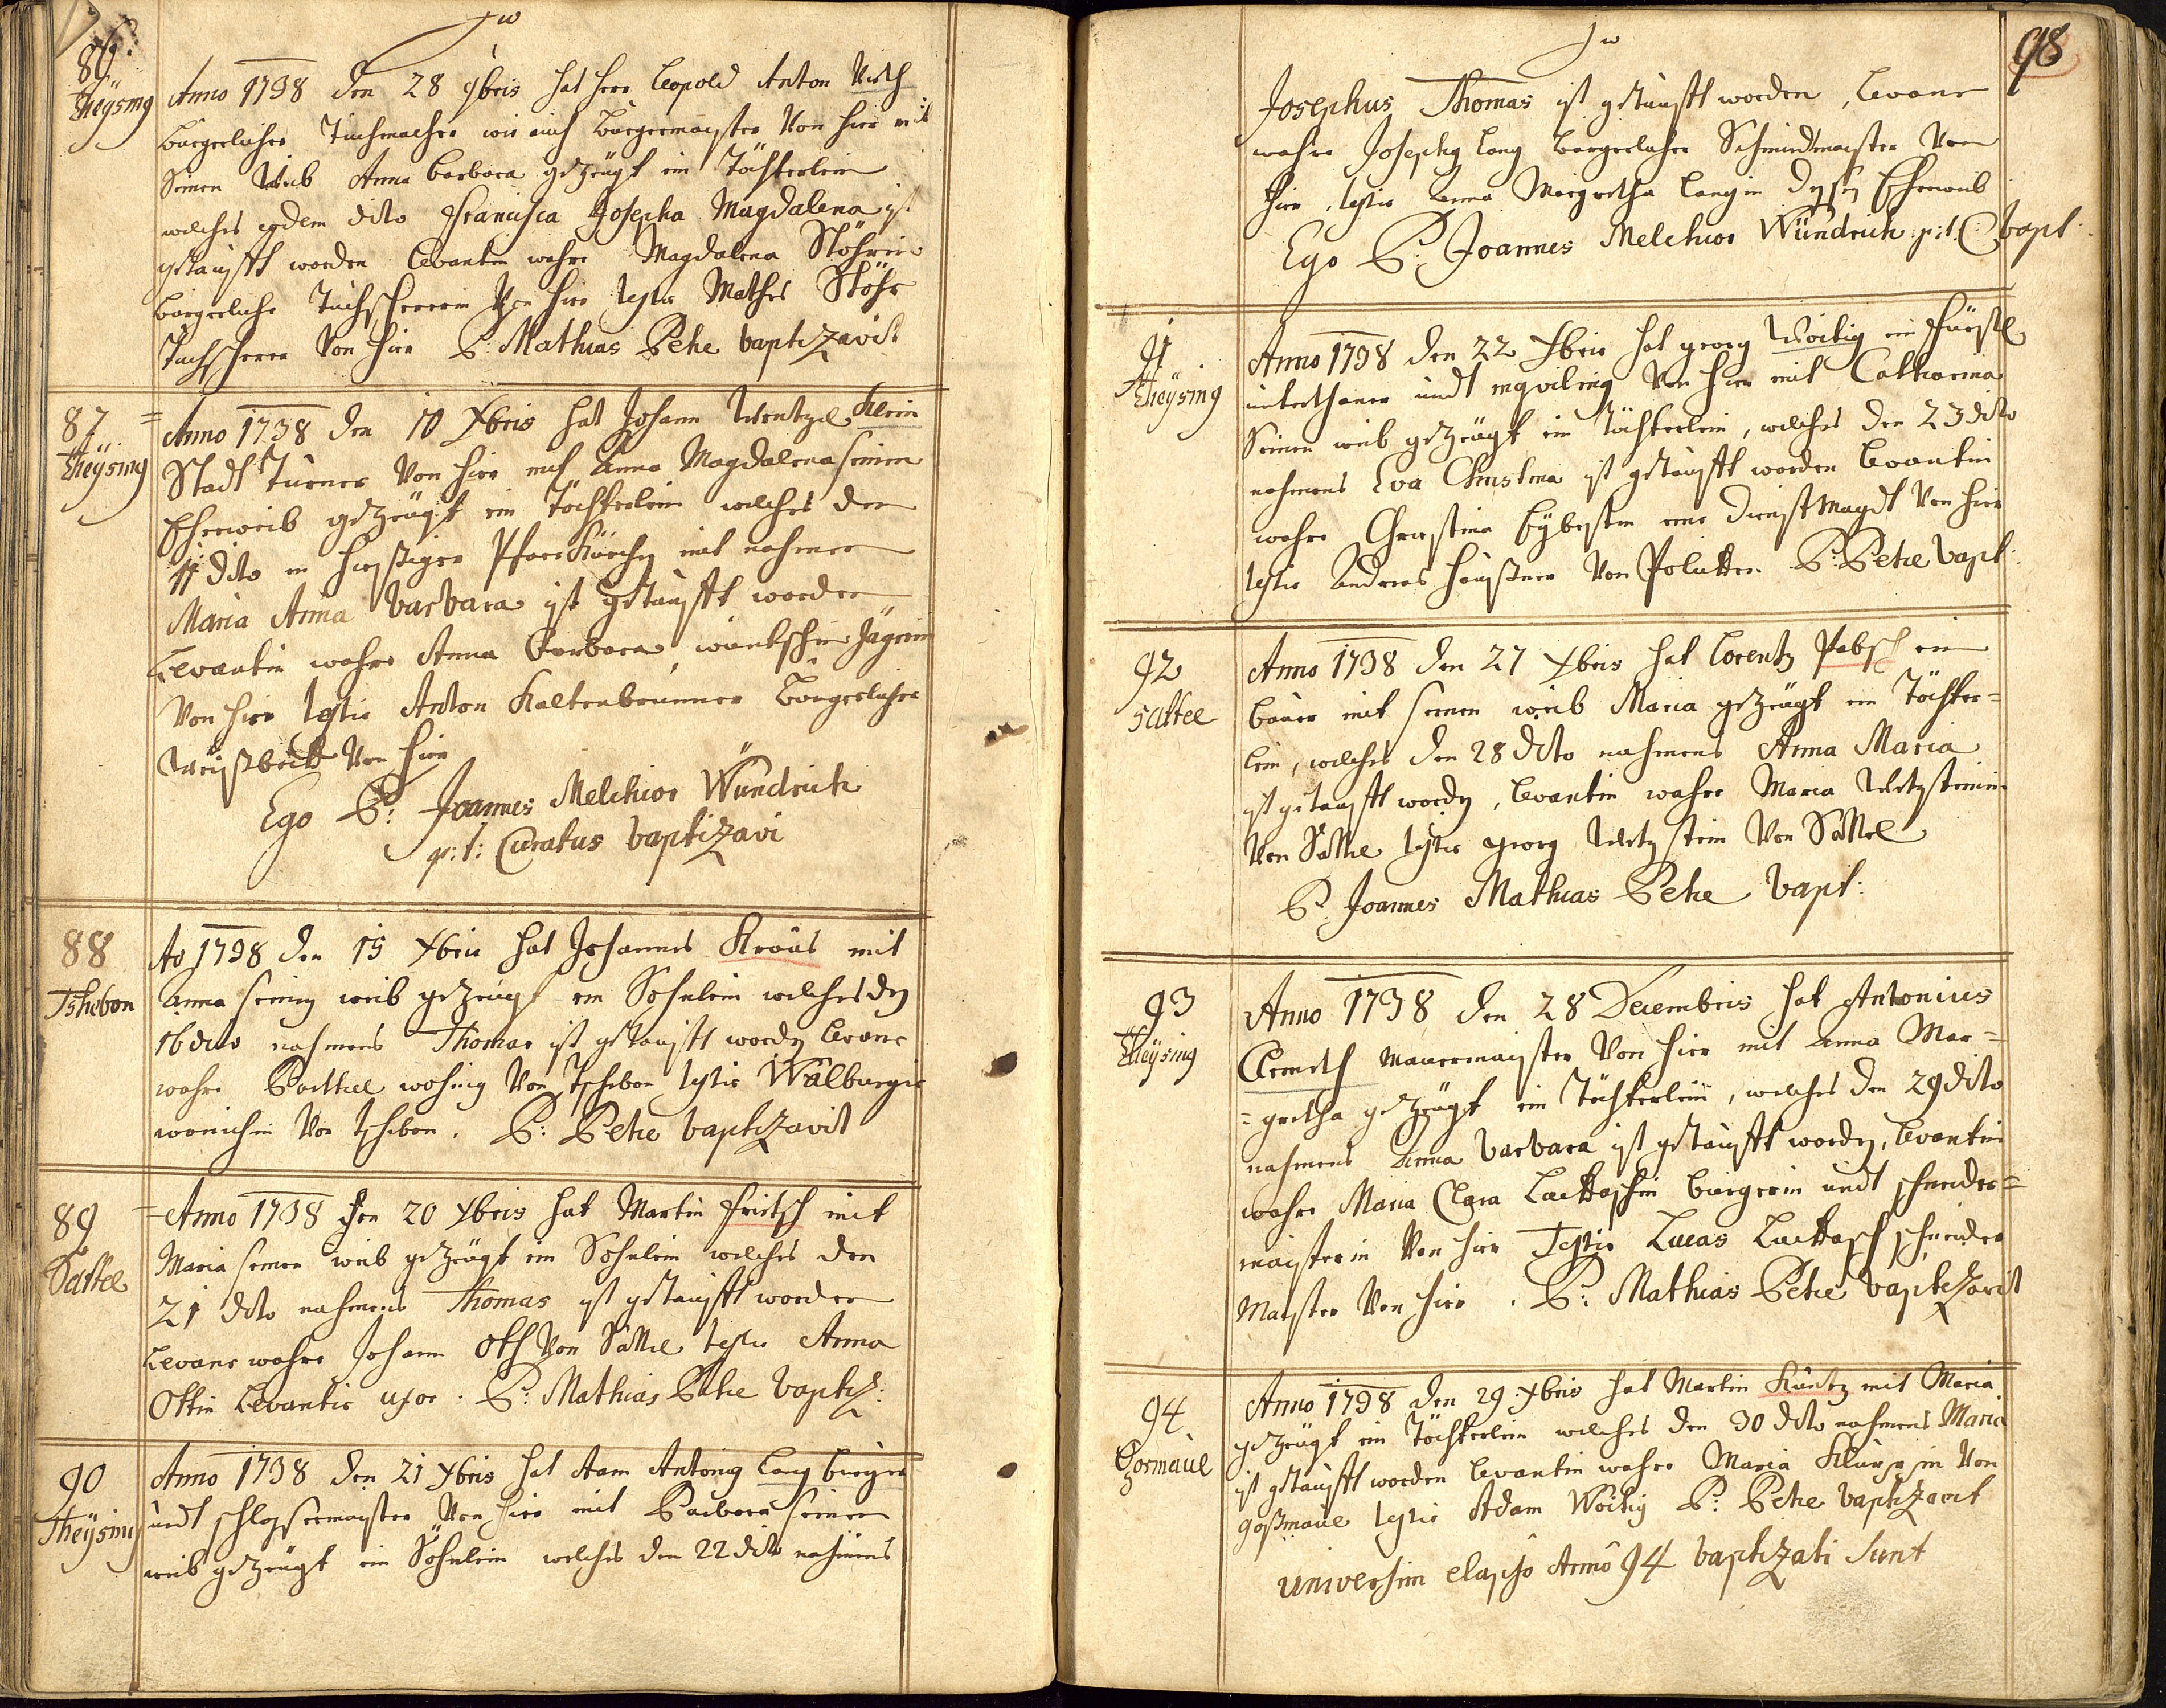 86.
Theÿsing
Anno 1738 den 28 9bris hat Herr Leopold Anton Veith
bürgerlicher Tuchmacher wie auch Bürgermaister Von hier mit
Seinen Weib Anna Barbara gezeügt ein Töchterlein
welches eodem dito Francisca Josepha Magdalena ist
getaufft worden Levantin wahre Magdalena Stöhrin
bürgerliche Tuchscherrin Von hier testis Mathes Stöhr
Tuchscherer Von hier P: Mathias Petze baptizavit
87
Theÿsing
Anno 1738 den 10 Xbris hat Johann Wentzel Klein
Stadt Turner Von hier mit Anna Magdalena seinen
Eheweib gezeügt ein Töchterlein welches den
11 dito in hießiger Pfarr Kürchen mit nahmen
Maria Anna Barbara ist getaufft worden
Levantin wahre Anna Barbara Jägerin
Von hier testis Anton Kaltenbrunner Bürgerlicher
Weißbeckh Von hier
Ego P: Joannes Melchior Wündrich
p:t: Curatus baptizavi
88
Tschebon
Ao 1738 den 15 Xbris hat Johannes Kraus mit
Anna seinen weib gezeugt ein Söhnlein welches den
16 dito nahmens Thomas ist getaufft worden Levans
wahre Barthel Von Tschebon testis Walburgis
Von tschebon. P: Petze baptizavit
89
Sattel
Anno 1738 den 20 Xbris hat Martin Fritsch mit
Maria seinen weib gezeügt ein Söhnlein welches den
21 dito nahmens Thomas ist getaufft worden
Levans wahre Johann Oth Von Sattel testis Anna
Ottin Levantis uxor. P: Mathias Petze baptiz:
90
Theÿsing
Anno 1738 den 21 Xbris hat Antonÿ Lang bürger
undt schlossermaister Von hier mit Barbara seinen
weib gezeügt ein Söhnlein welches den 22 dito nahmens
98
Josephus Thomas ist getaufft worden, Levans
wahre Joseph Lang bürgerlicher Schmidtmaister Von
hier, testis Anna Margretha Langin dessen Eheweib
Ego P: Joannes Melchior Wündrich p:t: C: bapt:
91
Theÿsing
Anno 1738 den 22 Xbris hat georg Woitig ein Fürstl
unterthaner undt inquilinus Von hier mit Catharina
Seinen weib gezeügt ein Töchterlein, welches den 23 dito
nahmens Eva Christina ist getaufft worden Levantin
wahre Christina eine dienst Magdt Von hier
testis Andreas Von P: Petze bapt:
92
Sattel
Anno 1738 den 27 Xbris hat Lorentz Pabst ein
bauer mit seinen weib Maria gezeügt ein Töchter=
lein, welches den 28 dito nahmens Anna Maria
ist getaufft worden, Levantin wahre Maria Wetzsteinin
Von Sattel testis georg Wetzstein Von Sattel
P: Joannes Mathias Petze bapt:
93
Theÿsing
Anno 1738 den 28 Decembris hat Antonius
Clementh Mauermaister Von hier mit Anna Mar=
=gretha gezeügt ein Töchterlein, welches den 29 dito
nahmens Anna Barbara ist getaufft worden, Levantin
wahre Maria Clara bürgerin undt schneider=
maisterin Von hier Testis Lucas schneider
Maister Von hier. P: Mathias Petze baptizavit
94
Gosmaül
Anno 1738 den 29 Xbris hat Martin Küntz mit Maria
gezeügt ein Töchterlein welches den 30 dito nahmens Maria
ist getaufft worden Levantin wahre Maria Von
goßmaül testis Adam Woitig P: Petze baptizavit
universim elapso Anno 94 baptizati sunt